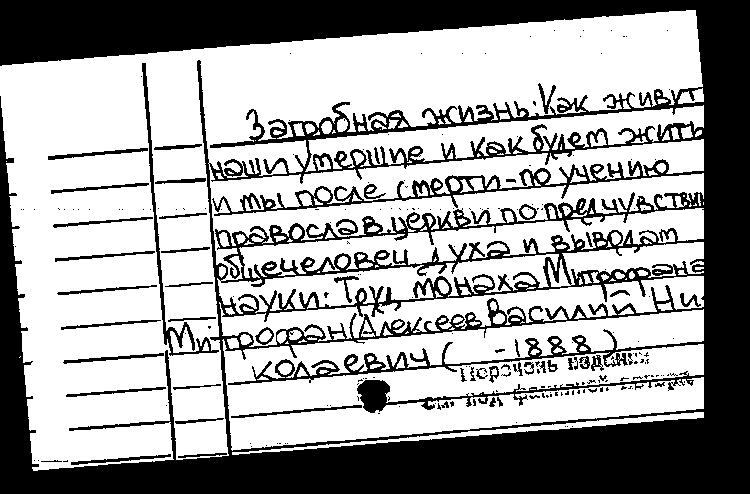 Загробная жизнь: Как живут
наши умершие и как будет жить
и мы после смерти-по учению
православ. церкви, по предчувствию
общечеловеч духа и выводам
науки: Труд монаха Митрофана
Митрофан (Алексеев, Василий Ни-
колаевич ( -1888)
Перечень изданий
см. под фамилией автора